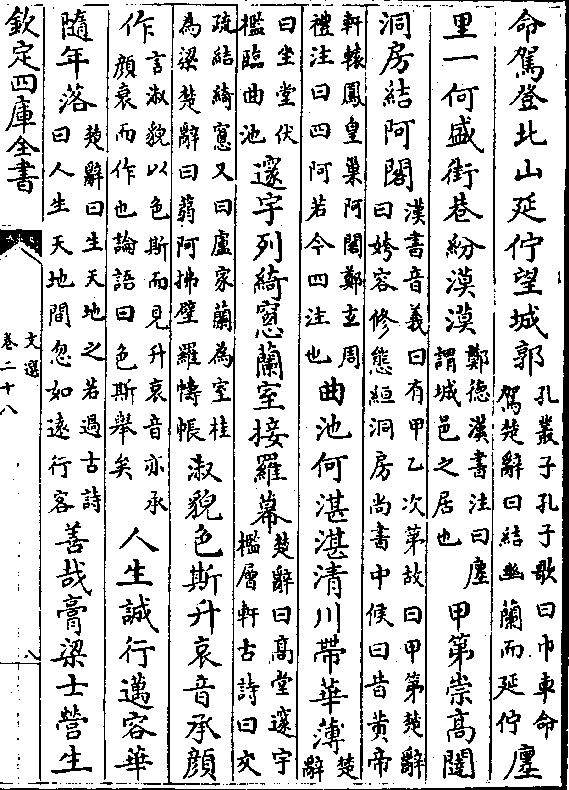 命駕登北山延佇望城郭
孔叢子孔子歌曰巾車命
駕楚辭曰結幽蘭而延佇
廛
里一何盛街巷紛漠漠
鄭德漢書注曰廛
謂城邑之居也
甲第崇高闥
洞房結阿閣
漢書音義曰有甲乙次第故曰甲第楚辭
曰姱容修態絙洞房尚書中候曰昔黄帝
軒轅鳳皇巢阿閣鄭玄周
禮注曰四阿若今四注也
曲池何湛湛清川帶華薄
楚
辭
曰坐堂伏
檻臨曲池
邃宇列綺窓蘭室接羅幕
楚辭曰高堂邃宇
檻層軒古詩曰交
疏結綺窓又曰盧家蘭為室桂
為梁楚辭曰蒻阿拂壁羅幬帳
淑貌色斯升哀音承顔
作
言淑貌以色斯而見升哀音亦承
顔衰而作也論語曰色斯舉矣
人生誠行邁容華
隨年落
楚辭曰生天地之若過古詩
曰人生天地間忽如遠行客
善哉膏粱士營生
欽定四庫全書
文選
卷二十八
八